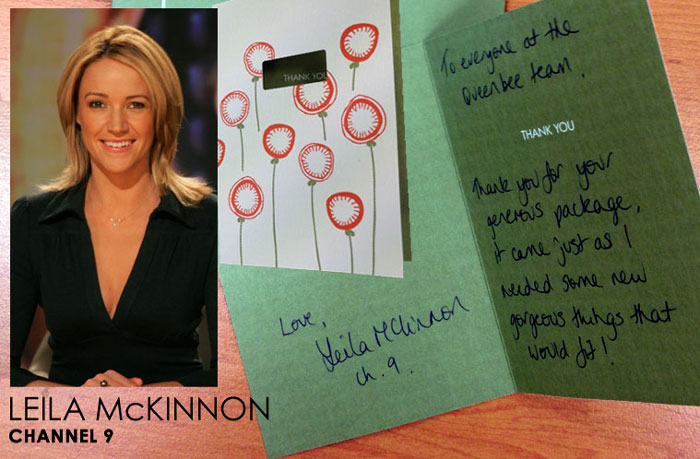 THANK YOU
To everyone at the
Queenbee team.
THANK YOU
Thank you for your
generous package,
it came just as I
needed some new
gorgeous things that
would fit!
Love,
Leila McKinnon
ch. 9.
LEILA McKINNON
CHANNEL 9